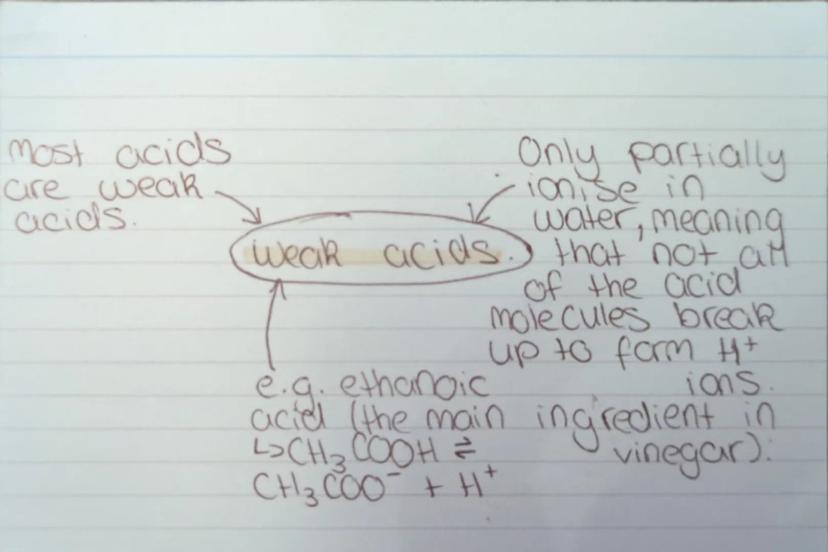 Most acids
are weak
acids.
weak acids.
Only partially
ionise in
water, meaning
that not all
of the acid
molecules break
up to form H⁺
ions.
e.g. ethanoic
acid (the main ingredient in
vinegar).
↳CH₃COOH ⇌
CH₃COO⁻ + H⁺